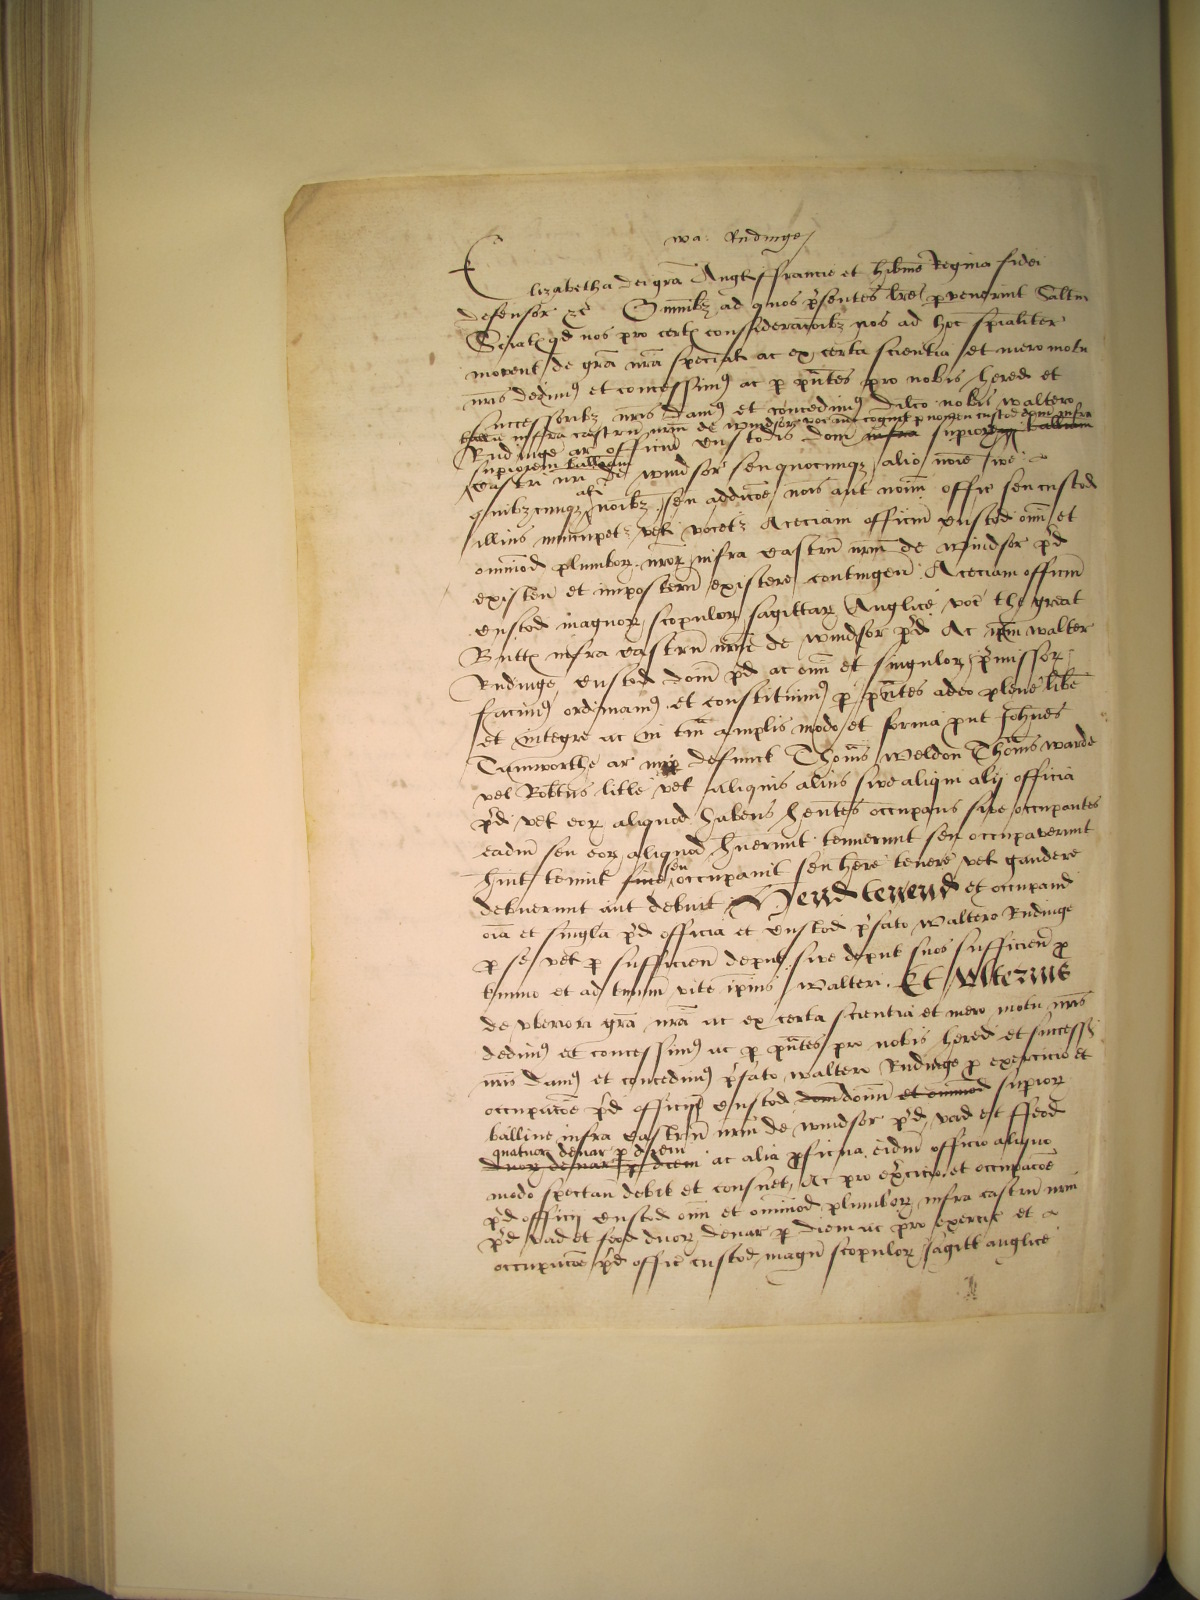 wa: Rudinge
Elizabetha dei gra Angl ffrancie et hibnie Regina fidei
defensor &c Omnibz ad quos psentes lre pvenerint Saltm
Sciatis qd nos pro certis consideracoibz nos ad hoc spialiter
movent de gra nra speciali ac ex certa scientia et mero motu
nris dedimus et concessimus ac p pntes pro nobis hered et
successoribz nris damus et concedimus dilco nobis waltero
infra castru nrm de windsor voc cognit p nomen custod dom infra
Rudinge ar officiu custodis dom infra supior ballium
supiorem ballium
castri nri de windsor seu quocunqz alio noie sive
quibzcunqz alijs noibz seu addicoe nois aut noim offic seu custod
illius nuncupet vel vocet Aceciam officiu custod oim et
omniod plumbor nror infra castru nrm de windsor pd
existen et imposteru existere contingen Aceciam officiu
custod magnor scopulor sagittar Anglice voc the great
Butts infra castru nrm de windsor pd Ac ipm walter
Rudinge custod dom pd ac oim et singulor pmissor
facimus ordinamus et constituimus p pntes adeo plene libe
et integre ac in tam amplis modo et forma put Johnes
Tamworthe ar nup defunct Thomas Weldon Thomas warde
vel Robtus litle vel aliquis alius sive aliqui alij officia
pd vel eor aliquod habens hentes occupans sive occupantes
eadm seu eor aliquod huerunt tenuerunt seu occupaverunt
huit tenuit sive seu occupavit seu here tenere vel gaudere
debuerunt aut debuit Hend tenend et occupand
oia et singla pd officia et custod pfato Waltero Rudinge
p se vel p sufficien deput sive deput suos sufficien p
tmino et ad tminu vite ipius Walteri. Et Ulterius
de vberiori gra nra ac ex certa scientia et mero motu nris
dedimus et concessimus ac p pntes pro nobis hered et success
nris damus et concedimus pfato waltero Rudinge p exercicio et
occupacoe pd officij custod dom domu et omniod supior
ballive infra castru nrm de windsor pd vad et ffeod
quatuor denar p diem
duor denar p diem ac alia pficua eidm officio aliquo
modo spectan debit et consuet, Ac pro excicio et occupacoe
pd officij custod oim et omniod plumbor infra castru nrm
pd vad et feod duor denar p diem ac pro exercic et
occupacoe pd offic custod magn scopulor sagitt anglice